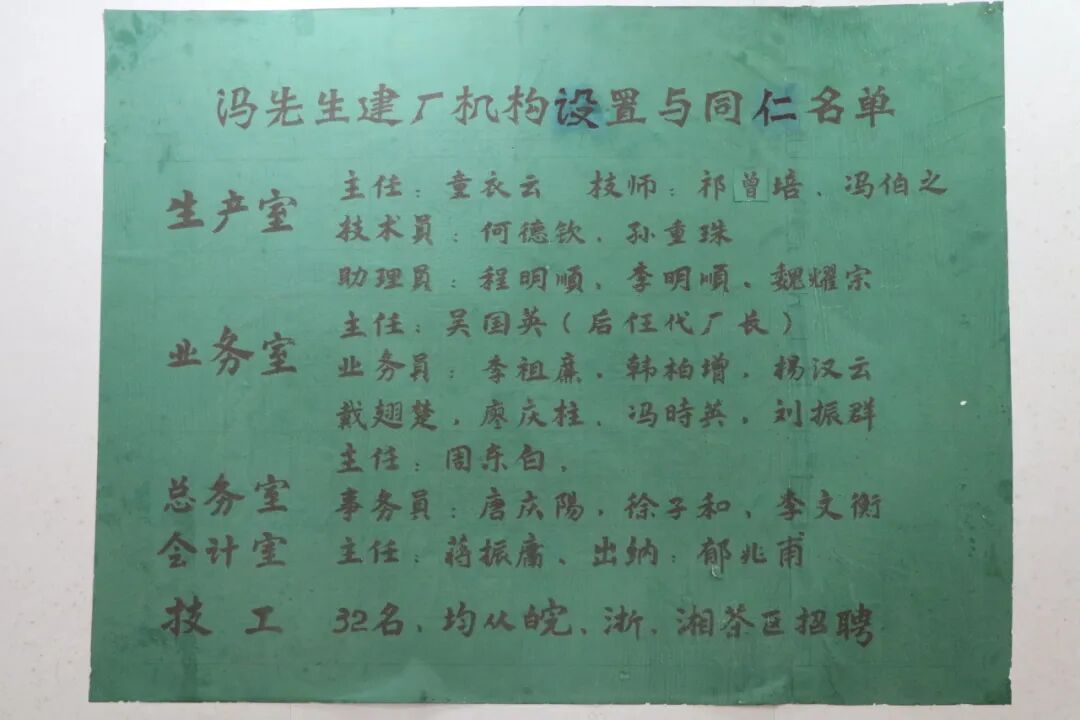 冯先生建厂机构设置与同仁名单
生产室 主任：童衣云 技师：祁曾培、冯伯之
技术员：何德钦、孙重珠
助理员：程明順、李明順、魏耀宗
业务室 主任：吴国英（后任代厂长）
业务员：季祖廉、韩柏增、杨汉云
戴翅楚，廖庆柱、冯時英，刘振群
主任：周东白，
总务室 事务員：唐庆陽，徐子和、李文衡
会计室 主任：蒋振庸、出纳：郁兆甫
技工 32名、均从皖、浙、湘茶区招聘